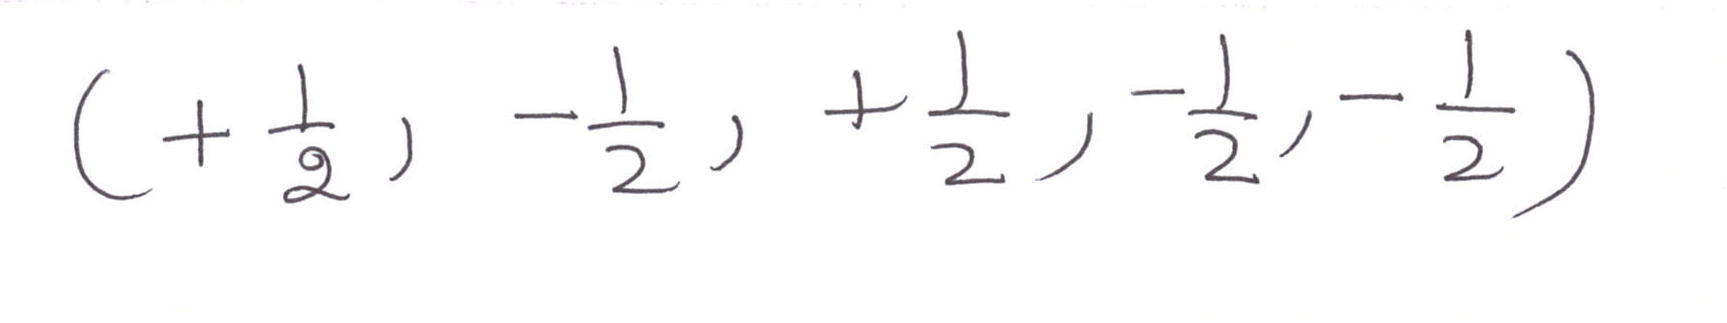 (+1/2, -1/2, +1/2, -1/2, -1/2)